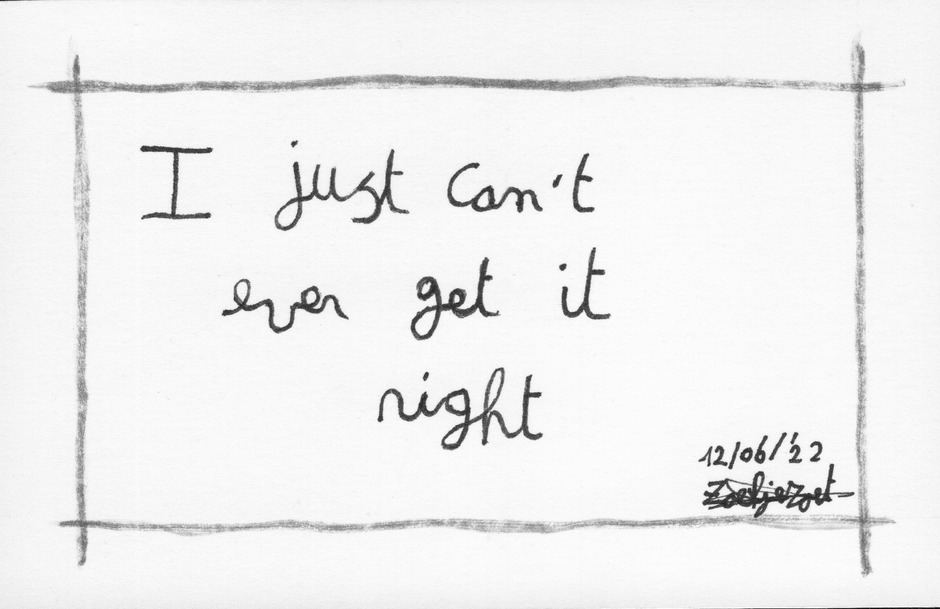 I just can't
ever get it
right
12/06/'22